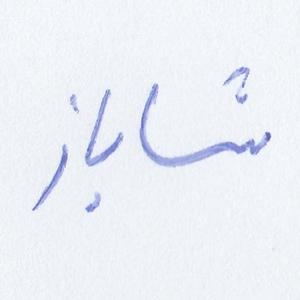 شاباز